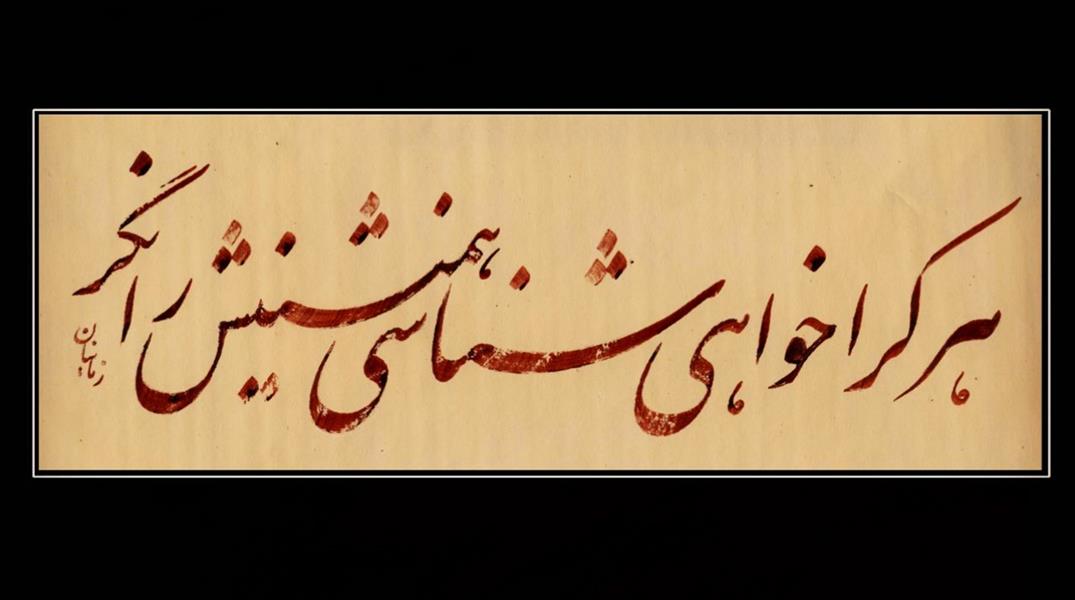 هر کرا خواهی شناسی همنشینش را نگر
زمانیان